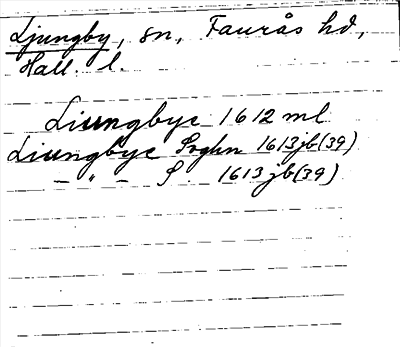 Ljungby, sn, Faurås hd,
Hall. l.
Liungbye 1612 ml
Liungbye Soghn 1613 jb (39)
— " — S. 1613 jb (39)